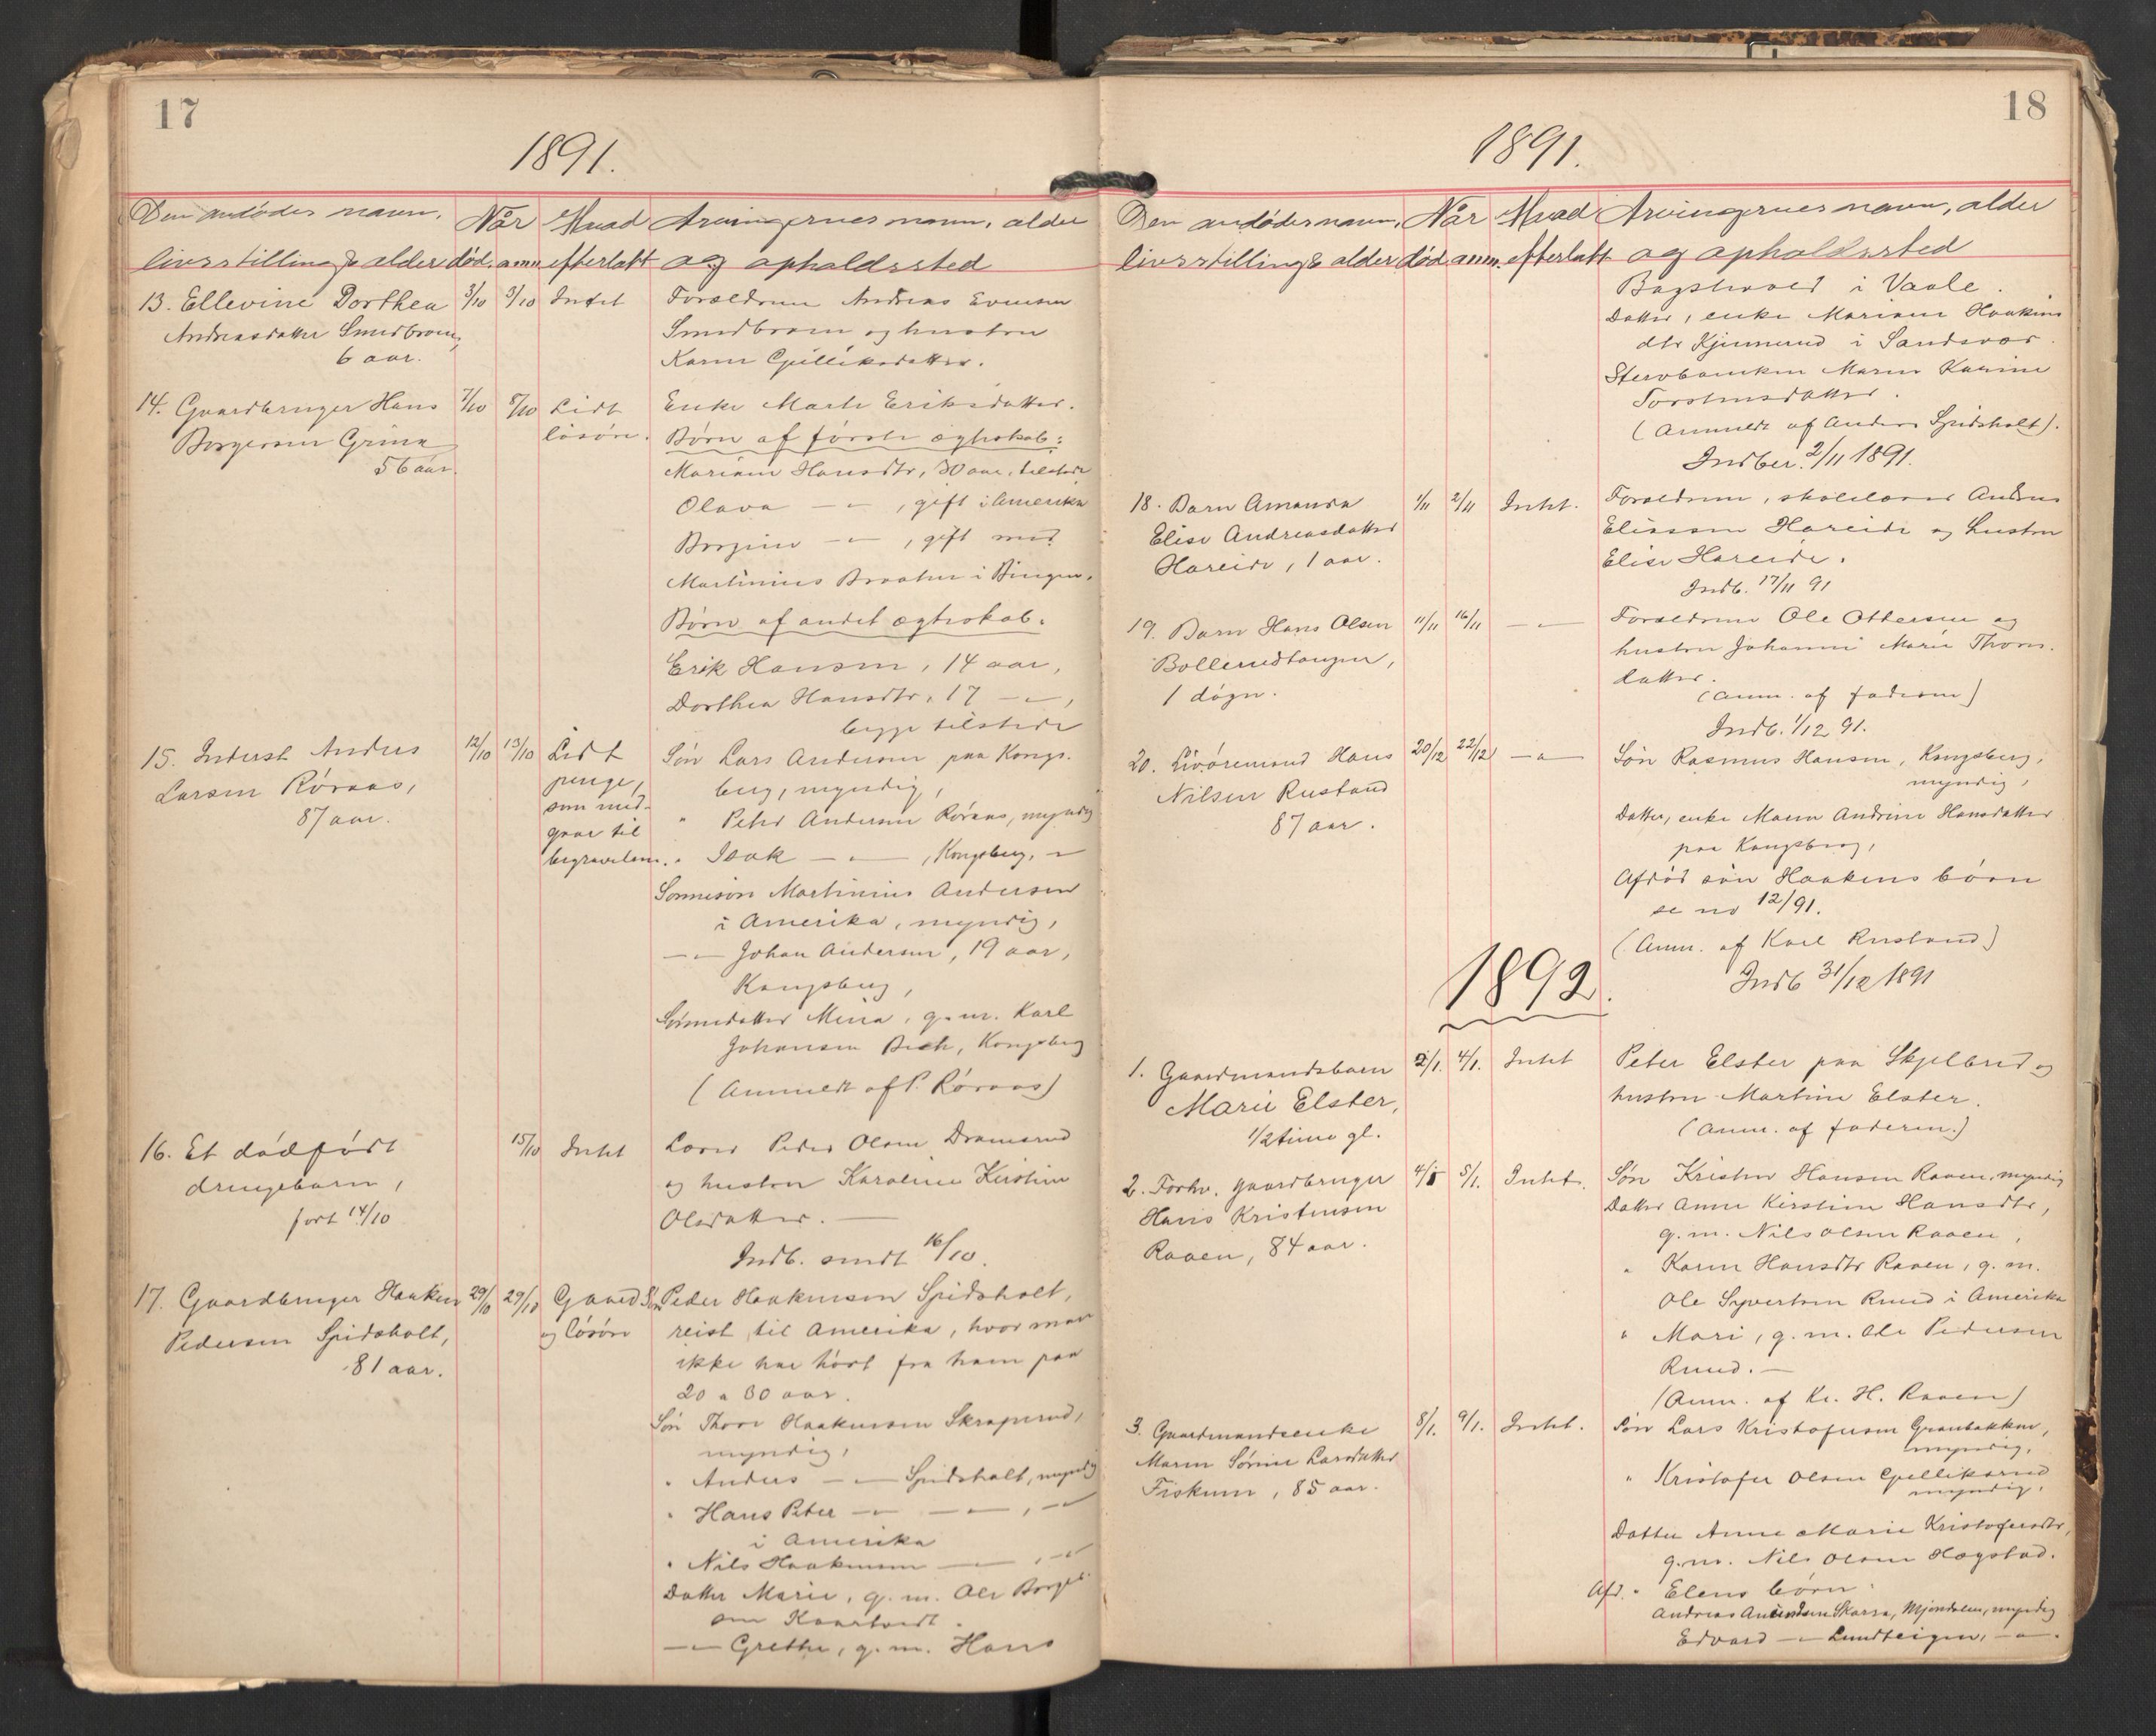 17
1891.
Den avdødes navn, Når Hvad Arvingernes navn, alder
livsstilling & alder død. anm. efterladt og opholdssted
13. Ellevine Dorthea 3/10 3/10 Intet Forældrene Andreas Evensen
Andreasdatter Smedbraaen, Smedbraaen og hustru
6 aar. Karen Gjelliksdatter.
14. Gaardbruger Hans 7/10 8/10 Lidt Enke Marte Eriksdatter.
Borgersen Grina løsøre. Børn af første ægteskab:
56 aar. Mariane Hansdtr, 30 aar, tilstede
Olava —"—, gift i Amerika
Borgine —"—, gift med
Martinius Braaten i Bingen.
Børn af andet ægteskab.
Erik Hansen, 14 aar,
Dorthea Hansdtr. 17 —"—,
begge tilstede
15. Inderst Anders 12/10 13/10 Lidt Søn Lars Andersen paa Kongs-
Larsen Røraas, penge, berg, myndig,
87 aar. som med- " Peder Andersen Røraas, myndig
gaar til
begravelsen. " Isak —"—, Kongsberg, —"—
Sønnesøn Martinius Andersen
i Amerika, myndig,
—"— Johan Andersen, 19 aar,
Kongsberg,
Sønnedatter Mina, g. m. Karl
Johansen Bech, Kongsberg
(Anmeldt af P. Røraas)
16. Et dødfødt 15/10 Intet Lærer Peder Olsen Dramsrud
drengebarn, og hustru Karoline Kirstine
født 14/10 Olsdatter. —
Indb. sendt 16/10.
17. Gaardbruger Haaken 29/10 29/10 Gaard Søn Peder Haakensen Spidsholt,
Pedersen Spidsholt, og løsøre reist til Amerika, hvor man
81 aar. ikke har hørt fra ham paa
20 a 30 aar.
Søn Thore Haakensen Skraperud,
myndig,
" Anders —"— Spidsholt, myndig
" Hans Peter —"— —"—, —"—
i Amerika
" Nils Haakensen —"—, —"—
Datter Marie, g. m. Ole Borger-
sen
—"— Grethe, g. m. Hans
18
1891.
Den avdødes navn, Når Hvad Arvingernes navn, alder
livsstilling & alder død anm. efterladt og opholdssted
i Vaale.
Datter, enke Mariane Haakens
dtr Kjennerud i Sandsvær.
Stervboenken Maren Karine
Torstensdatter.
(Anmeldt af Anders Spidsholt).
Indber. 2/11 1891.
18. Barn Amanda 1/11 2/11 Intet. Forældrene, skolelærer Andreas
Elise Andreasdatter Eliassen Hareide og hustru
Hareide, 1 aar. Elise Hareide.
Indb. 17/11 91
19. Barn Hans Olsen 11/11 16/11 —"— Forældrene Ole Ottersen og
Bollerudtangen, hustru Johanne Marie Thors-
1 døgn. datter.
(anm. af faderen)
Indb. 1/12 91.
20. Livøremand Hans 20/12 22/12 —"— Søn Rasmus Hansen, Kongsberg,
Nilsen Rustand myndig,
87 aar. Datter, enke Maren Andrine Hansdatter
paa Kongsberg,
Afdød søn Haakens børn
se no 12/91.
(Anm. af Karl Rustand)
1892. Indb 31/12 1891
1. Gaardmandsbarn 2/1. 4/1. Intet Peter Elster paa Skjelbred og
Marie Elster, hustru Martine Elster.
1/2 time gl. (Anm. af faderen.)
2. Forhv. gaardbruger 4/1 5/1. Intet. Søn Kristen Hansen Raaen, myndig
Hans Kristensen Datter Anne Kirstine Hansdtr,
Raaen, 84 aar. g. m. Nils Olsen Raaen,
" Karen Hansdtr Raaen, g. m.
Ole Syvertsen Ruud i Amerika
" Mari, g. m. Ole Pedersen
Ruud. —
(Anm. af Kr. H. Raaen)
3. Gaardmandsenke 8/1. 9/1. Intet. Søn Lars Kristofersen Granbakken,
Maren Sørine Larsdatter myndig,
Fiskum, 85 aar. " Kristofer Olsen Gjelliksrud
myndig.
Datter Anne Marie Kristofersdtr,
g. m. Nils Olsen Hogstad.
Afd. " Elens børn.
Andreas Amundsen Skarra, Mjøndalen, myndig
Edvard —"— Lundteigen, —"—.